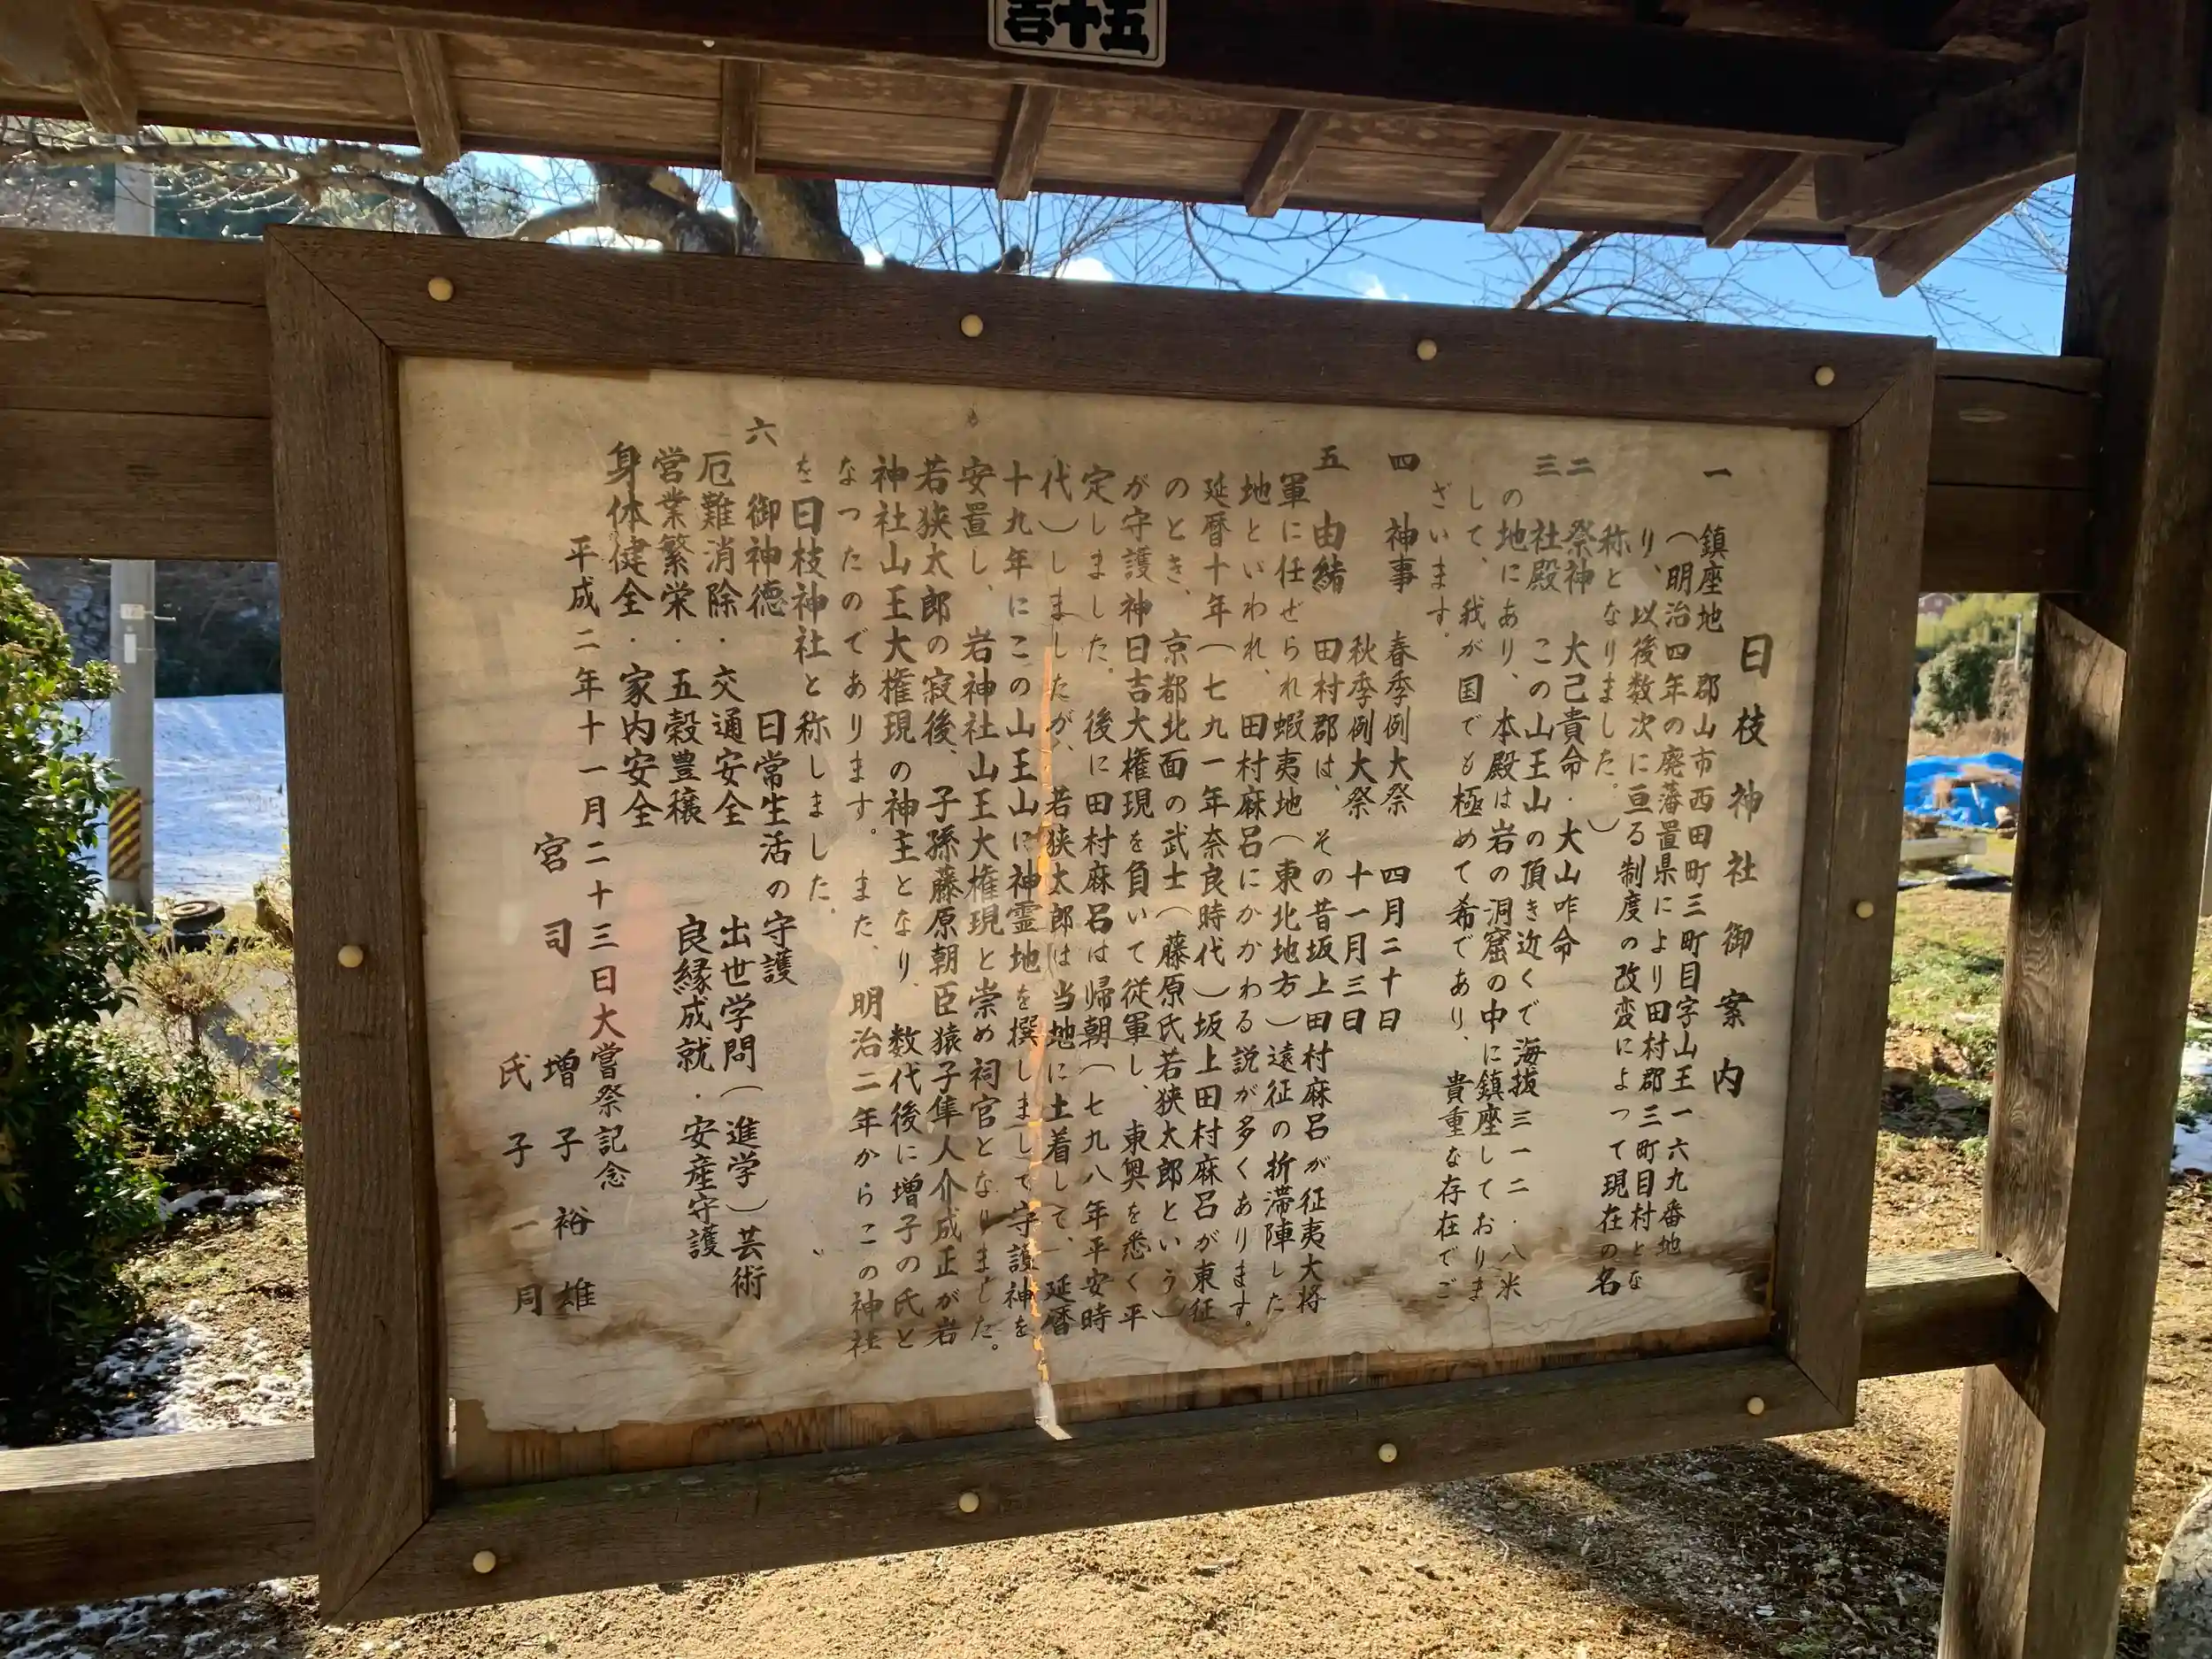 五十吉
日枝神社御案内
一 鎮座地 郡山市西田町三町目字山王一六九番地
(明治四年の廃藩置県により田村郡三町目村とな
り、以後数次に亘る制度の改変によって現在の名
称となりました。)
二 祭神 大己貴命・大山咋命
三 社殿 この山王山の頂き近くで海抜三一二・八米
の地にあり、本殿は岩の洞窟の中に鎮座しておりま
して、我が国でも極めて希であり、貴重な存在でご
ざいます。
四 神事 春季例大祭 四月二十日
秋季例大祭 十一月三日
五 由緒 田村郡は、その昔坂上田村麻呂が征夷大将
軍に任ぜられ蝦夷地(東北地方)遠征の折滞陣した
地といわれ、田村麻呂にかかわる説が多くあります。
延暦十年(七九一年奈良時代)坂上田村麻呂が東征
のとき、京都北面の武士(藤原氏若狭太郎という)
が守護神日吉大権現を負いて従軍し、東奥を悉く平
定しました。後に田村麻呂は帰朝(七九八年平安時
代)しましたが、若狭太郎は当地に土着して、延暦
十九年にこの山王山に神霊地を撰しまして守護神を
安置し、岩神社山王大権現と崇め祠官となりました。
若狭太郎の寂後、子孫藤原朝臣猿子隼人介成正が岩
神社山王大権現の神主となり、数代後に増子の氏と
なったのであります。また、明治二年からこの神社
を日枝神社と称しました。
六 御神徳 日常生活の守護
厄難消除・交通安全 出世学問(進学)芸術
営業繁栄・五穀豊穣 良縁成就・安産守護
身体健全・家内安全
平成二年十一月二十三日大嘗祭記念
宮司 増子裕雄
氏子一同